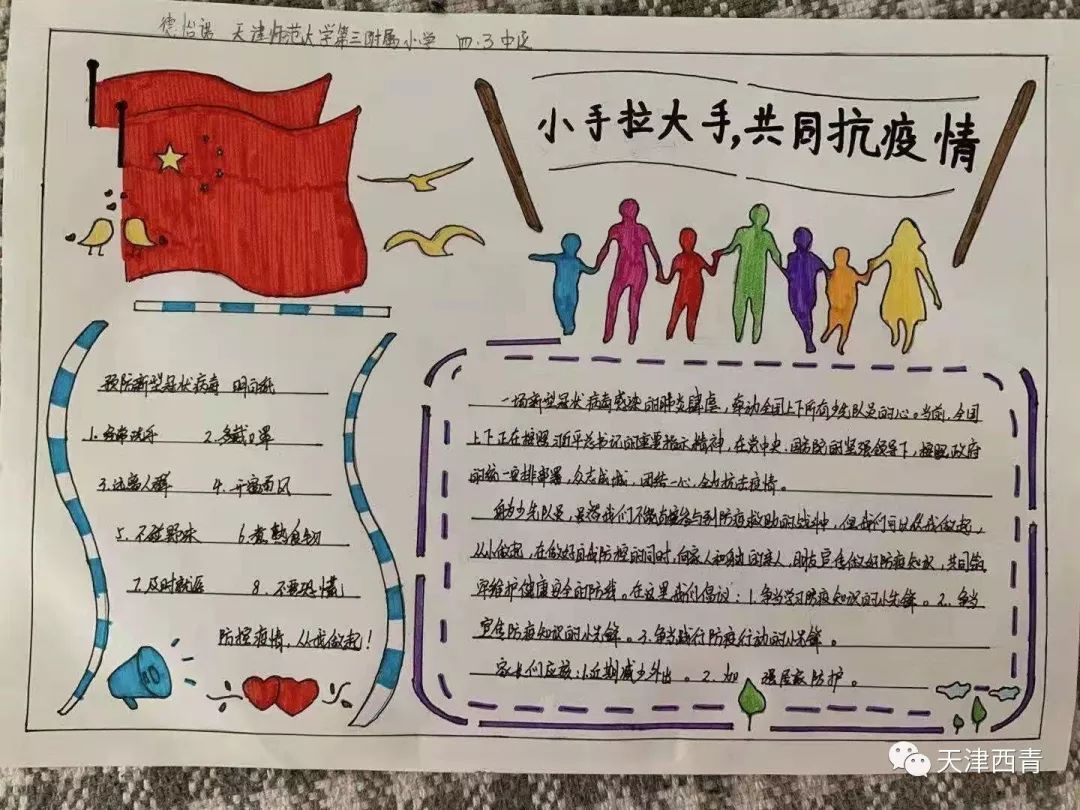 德怡诺 天津师范大学第三附属小学 四.3中队
小手拉大手,共同抗疫情
预防新型冠状病毒 明白纸
1.经常洗手 2.多戴口罩
3.远离人群 4.开窗通风
5.不碰野味 6.煮熟食物
7.及时就医 8.不要恐慌
防控疫情,从我做起!
一场新型冠状病毒感染的肺炎肆虐,牵动全国上下所有少先队员的心。当前,全国
上下正在按照习近平总书记的重要指示精神,在党中央、国务院的坚强领导下,按照政府
的统一安排部署,众志成城,团结一心,全力抗击疫情。
身为少先队员,虽然我们不能直接参与到防疫救助的战斗中,但我们可以从我做起,
从小做起,在做好自我防控的同时,向家人和独 的亲人、朋友宣传做好防疫知识,共同筑
牢维护健康安全的防线。在这里我们倡议:1.争当学习防疫知识的小先锋。2.争当
宣传防疫知识的小先锋。3.争当践行防疫行动的小先锋。
家长们应该:1.近期减少外出。2.加 强居家防护。
天津西青